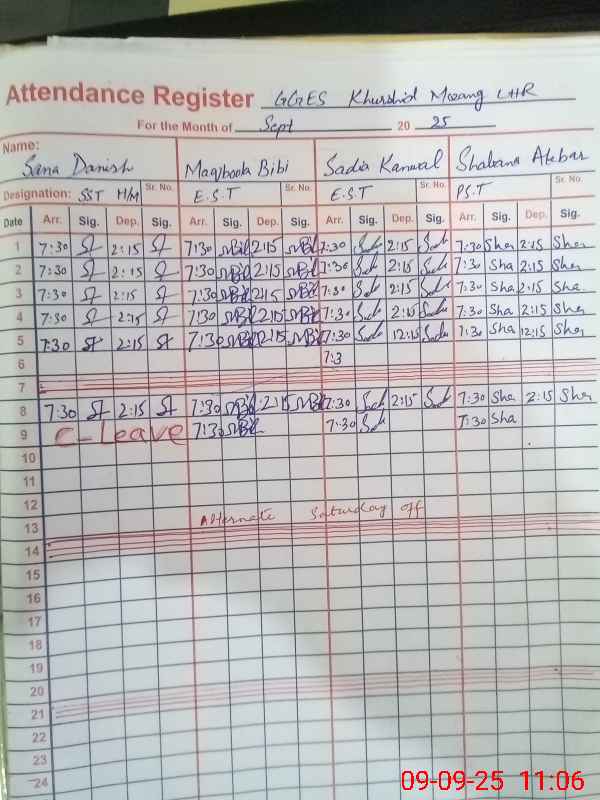 Attendance Register GGES Khurshid Mozang LHR
For the Month of Sept 20 25
Name: Sana Danish Maqboola Bibi Sadia Kanwal Shabana Akbar
Designation: SST H/M Sr. No. E.S.T Sr. No. E.S.T Sr. No. P.S.T Sr. No.
Date Arr. Sig. Dep. Sig. Arr. Sig. Dep. Sig. Arr. Sig. Dep. Sig. Arr. Sig. Dep. Sig.
1 7:30 2:15 7:30 2:15 7:30 Sad 2:15 Sad 7:30 Sha 2:15 Sha
2 7:30 2:15 7:30 2:15 7:30 Sad 2:15 Sad 7:30 Sha 2:15 Sha
3 7:30 2:15 7:30 2:15 7:30 Sad 2:15 Sad 7:30 Sha 2:15 Sha
4 7:30 2:15 7:30 2:15 7:30 Sad 2:15 Sad 7:30 Sha 2:15 Sha
5 7:30 2:15 7:30 2:15 7:30 Sad 12:15 Sad 7:30 Sha 12:15 Sha
6 7:3
7
8 7:30 2:15 7:30 2:15 7:30 Sad 2:15 Sad 7:30 Sha 2:15 Sha
9 C-Leave 7:30 7:30 Sad 7:30 Sha
10
11
12
13 Alternate Saturday off
14
15
16
17
18
19
20
21
22
23
24
09-09-25 11:06